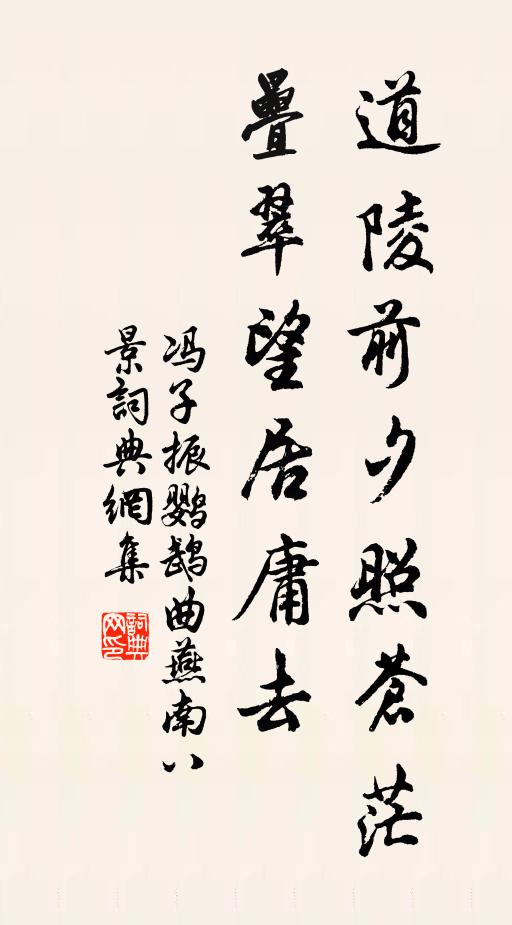 道陵前夕照蒼茫
疊翠望居庸去
冯子振鹦鵡曲燕南八
景詞典網集
詞典网印